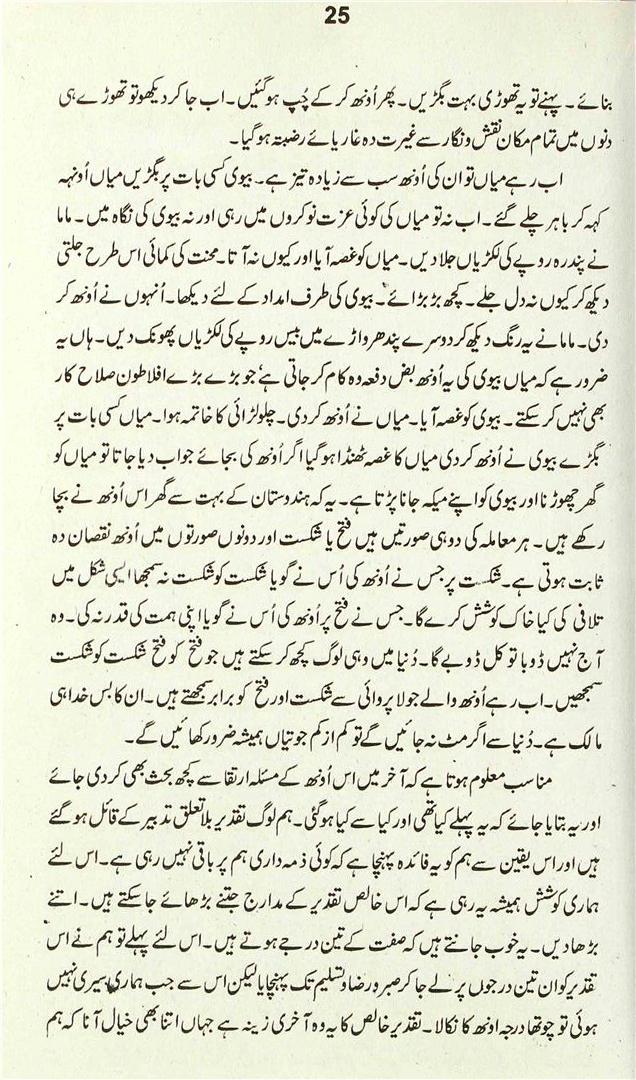 25
بنائے۔ پہنے تو یہ تھوڑی بہت بگڑیں۔ پھر اُونھ کر کے چُپ ہو گئیں۔ اب جا کر دیکھو تو تھوڑے ہی
دنوں میں تمام مکان نقش و نگار سے غیرت دہ غار یائے رضبتہ ہو گیا۔
اب رہے میاں تو ان کی اُونھ سب سے زیادہ تیز ہے۔ بیوی کسی بات پر بگڑیں میاں اُونہہ
کہہ کر باہر چلے گئے۔ اب نہ تو میاں کی کوئی عزت نوکروں میں رہی اور نہ بیوی کی نگاہ میں۔ ماما
نے پندرہ روپے کی لکڑیاں جلا دیں۔ میاں کو غصہ آیا اور کیوں نہ آتا۔ محنت کی کمائی اس طرح جلتی
دیکھ کر کیوں نہ دل جلے۔ کچھ بڑبڑائے۔ بیوی کی طرف امداد کے لئے دیکھا۔ اُنہوں نے اُونھ کر
دی۔ ماما نے یہ رنگ دیکھ کر دوسرے پندھرواڑے میں بیس روپے کی لکڑیاں پھونک دیں۔ ہاں یہ
ضرور ہے کہ میاں بیوی کی یہ اُونھ بض دفعہ وہ کام کر جاتی ہے، جو بڑے بڑے افلاطون صلاح کار
بھی نہیں کر سکتے۔ بیوی کو غصہ آیا۔ میاں نے اُونھ کر دی۔ چلو لڑائی کا خاتمہ ہوا۔ میاں کسی بات پر
بگڑے بیوی نے اُونھ کر دی میاں کا غصہ ٹھنڈا ہو گیا اگر اُونھ کی بجائے جواب دیا جاتا تو میاں کو
گھر چھوڑنا اور بیوی کو اپنے میکہ جانا پڑتا ہے۔ یہ کہ ہندوستان کے بہت سے گھر اس اُونھ نے بچا
رکھے ہیں۔ ہر معاملہ کی دو ہی صورتیں ہیں فتح یا شکست اور دونوں صورتوں میں اُونھ نقصان دہ
ثابت ہوتی ہے۔ شکست پر جس نے اُونھ کی اُس نے گویا شکست کو شکست نہ سمجھا ایسی شکل میں
تلافی کی کیا خاک کوشش کرے گا۔ جس نے فتح پر اُونھ کی اُس نے گویا اپنی ہمت کی قدر نہ کی۔ وہ
آج نہیں ڈوبا تو کل ڈوبے گا۔ دُنیا میں وہی لوگ کچھ کر سکتے ہیں جو فتح کو فتح شکست کو شکست
سمجھیں۔ اب رہے اُونھ والے جو لا پروائی سے شکست اور فتح کو برابر سمجھتے ہیں۔ ان کا بس خدا ہی
مالک ہے۔ دُنیا سے اگر مٹ نہ جائیں گے تو کم از کم جوتیاں ہمیشہ ضرور کھائیں گے۔
مناسب معلوم ہوتا ہے کہ آخر میں اس اُونھ کے مسئلہ ارتقا سے کچھ بحث بھی کر دی جائے
اور یہ بتایا جائے کہ یہ پہلے کیا تھی اور کیا سے کیا ہو گئی۔ ہم لوگ تقدیر بلا تعلق تدبیر کے قائل ہو گئے
ہیں اور اس یقین سے ہم کو یہ فائدہ پہنچا ہے کہ کوئی ذمہ داری ہم پر باقی نہیں رہی ہے۔ اس لئے
ہماری کوشش ہمیشہ یہ رہی ہے کہ اس خالص تقدیر کے مدارج جتنے بڑھائے جا سکتے ہیں۔ اتنے
بڑھا دیں۔ یہ خوب جانتے ہیں کہ صفت کے تین درجے ہوتے ہیں۔ اس لئے پہلے تو ہم نے اس
تقدیر کو ان تین درجوں پر لے جا کر صبر و رضا و تسلیم تک پہنچایا لیکن اس سے جب ہماری سیری نہیں
ہوئی تو چوتھا درجہ اونھ کا نکالا۔ تقدیر خالص کا یہ وہ آخری زینہ ہے جہاں اتنا بھی خیال آنا کہ ہم